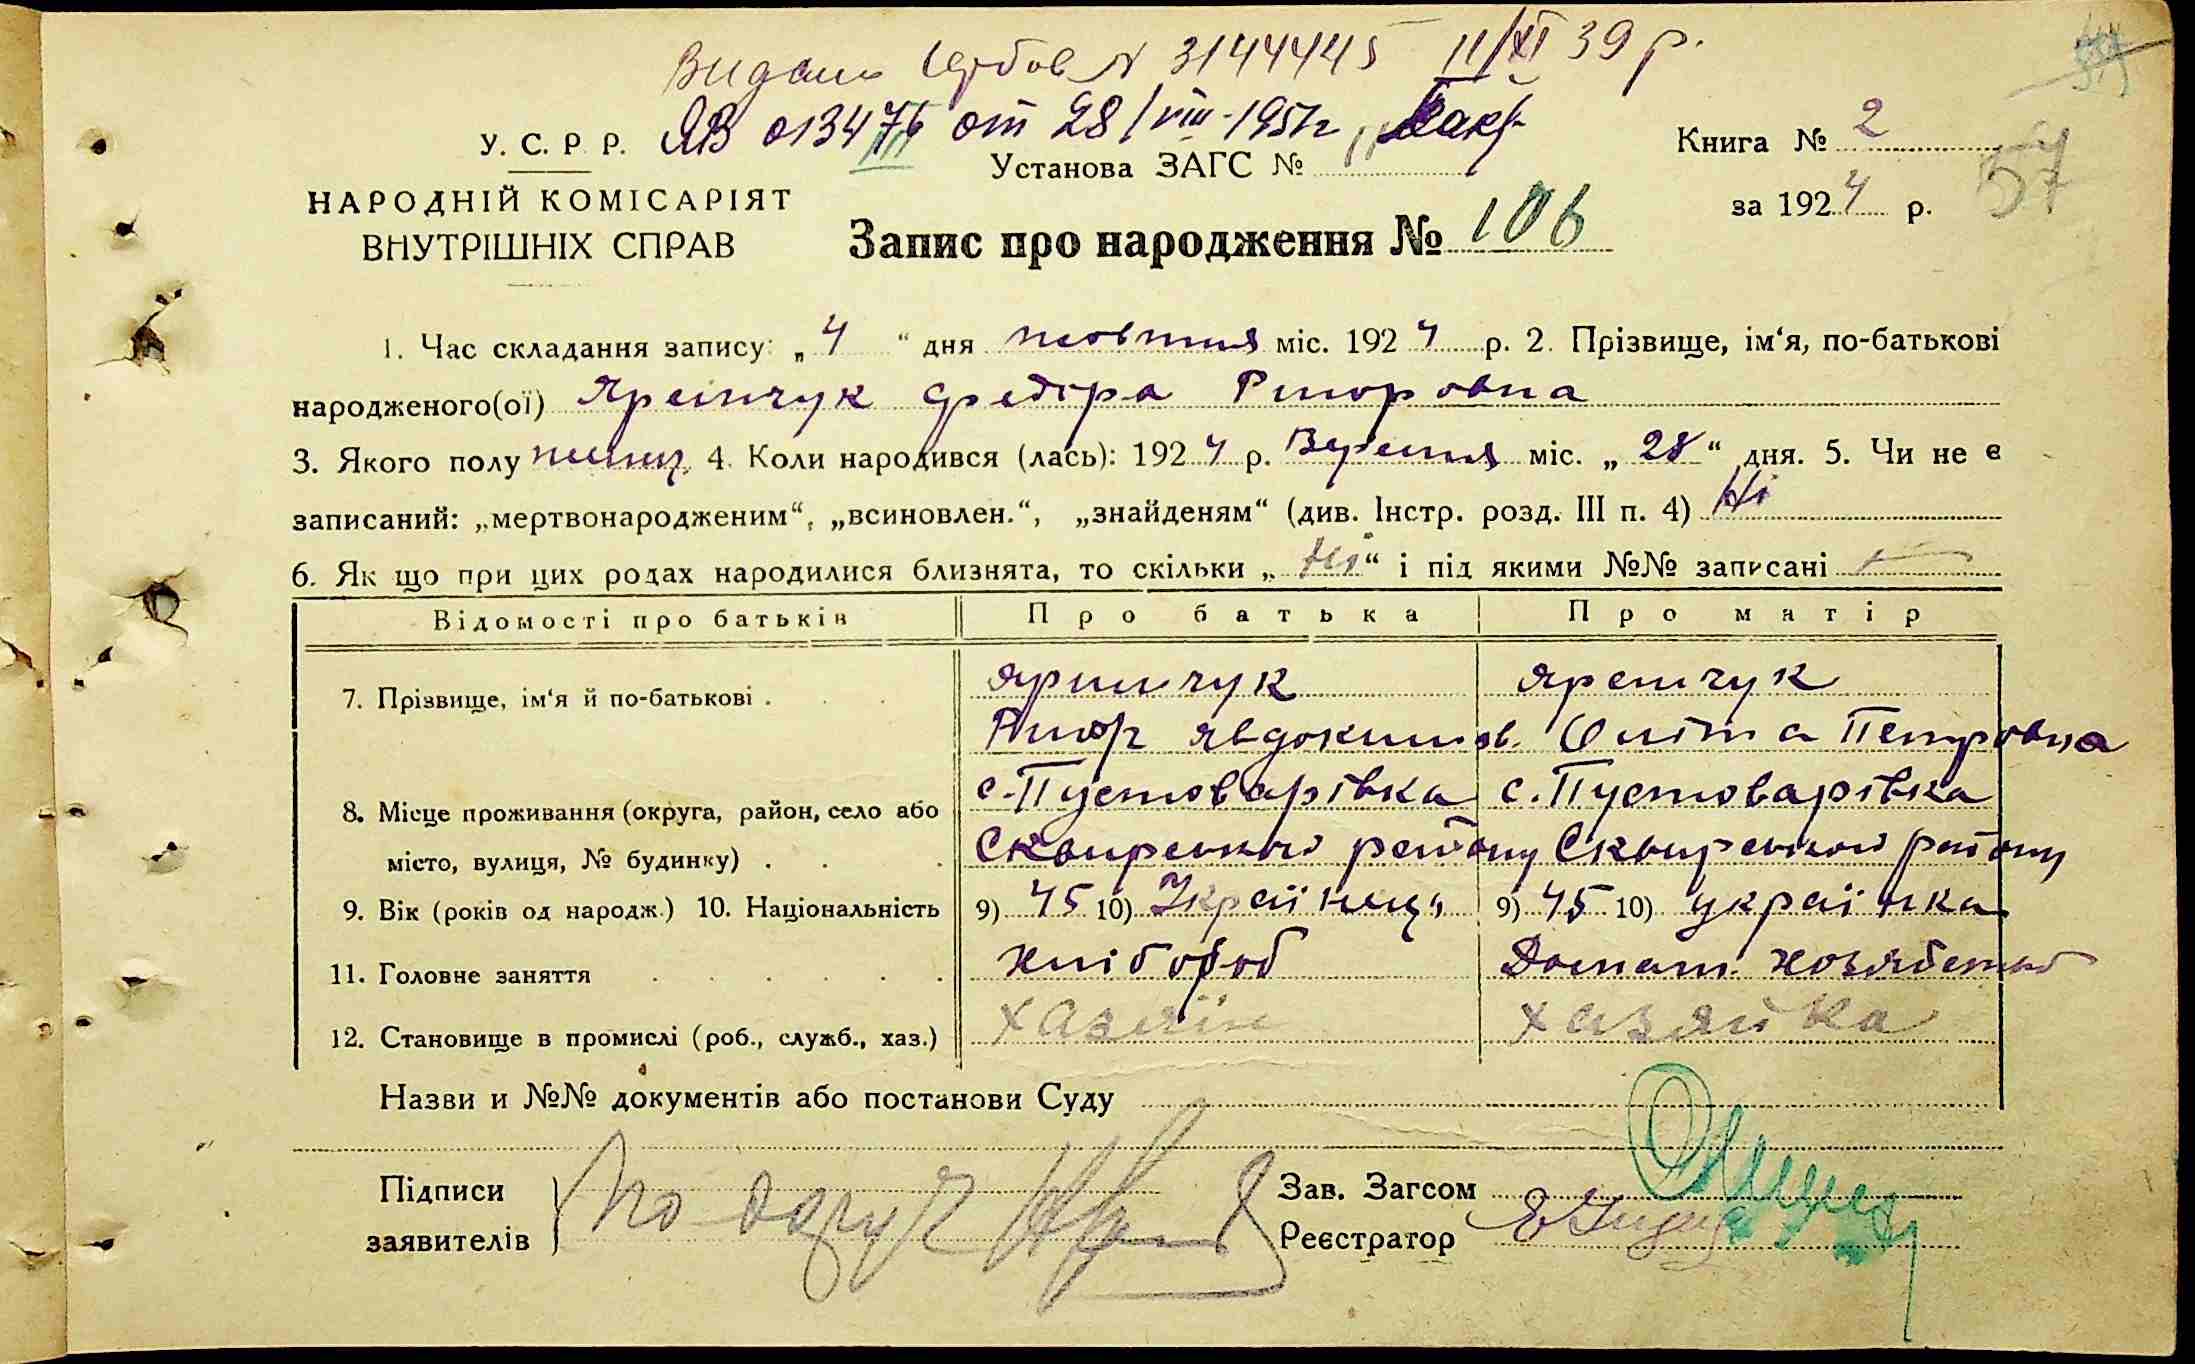 Видано 3144445 11/XI 39 р.
ЯВ 013476 от 28/VIII-1951г
У. С. Р. Р.
Установа ЗАГС №
Книга № 2
57
НАРОДНІЙ КОМІСАРІЯТ
ВНУТРІШНІХ СПРАВ
за 1924 р.
Запис про народження № 106
1. Час складання запису: „4“ дня жовтня міс. 1924 р. 2. Прізвище, ім‘я, по-батькові
народженого(ої) Яремчук Федора
3. Якого полу жіноч. 4. Коли народився (лась): 1924 р. Вересня міс. „28“ дня. 5. Чи не є
записаний: „мертвонародженим“, „всиновлен.“, „знайденям“ (див. Інстр. розд. III п. 4) Ні
6. Як що при цих родах народилися близнята, то скільки „Ні“ і під якими №№ записані —
Відомості про батьків Про батька Про матір
7. Прізвище, ім‘я й по-батькові . Яримчук Яремчук
Явдокимов. Петровна
с. Пустоварівка с. Пустоварівка
8. Місце проживання (округа, район, село або
місто, вулиця, № будинку) . Сквирського району Сквирського району
9. Вік (років од народж.) 10. Національність 9) 45 10) Українець 9) 45 10) українка
11. Головне заняття хлібороб Домаш. хозяйство
12. Становище в промислі (роб., служб., хаз.) хазяїн хазяйка
Назви и №№ документів або постанови Суду
Підписи
заявителів
по доруч
Зав. Загсом
Реєстратор